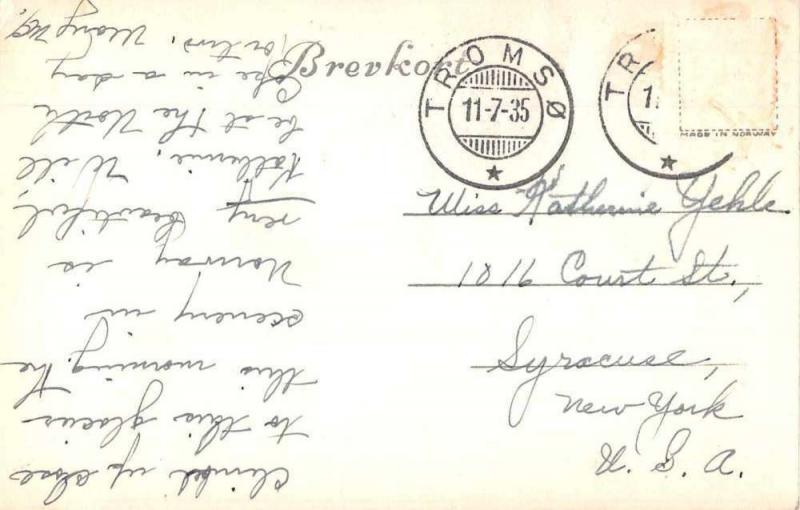 Brevkort
TROMSØ
11-7-35
TR
1
MADE IN NORWAY
Miss Katherine Yehle
1016 Court St.,
Syracuse,
New York
U. S. A.
Climbed up close
to this glacier
this morning. The
scenery in
Norway is
very beautiful,
Katherine. Will
be at the North
Cape in a day
or two. Mary